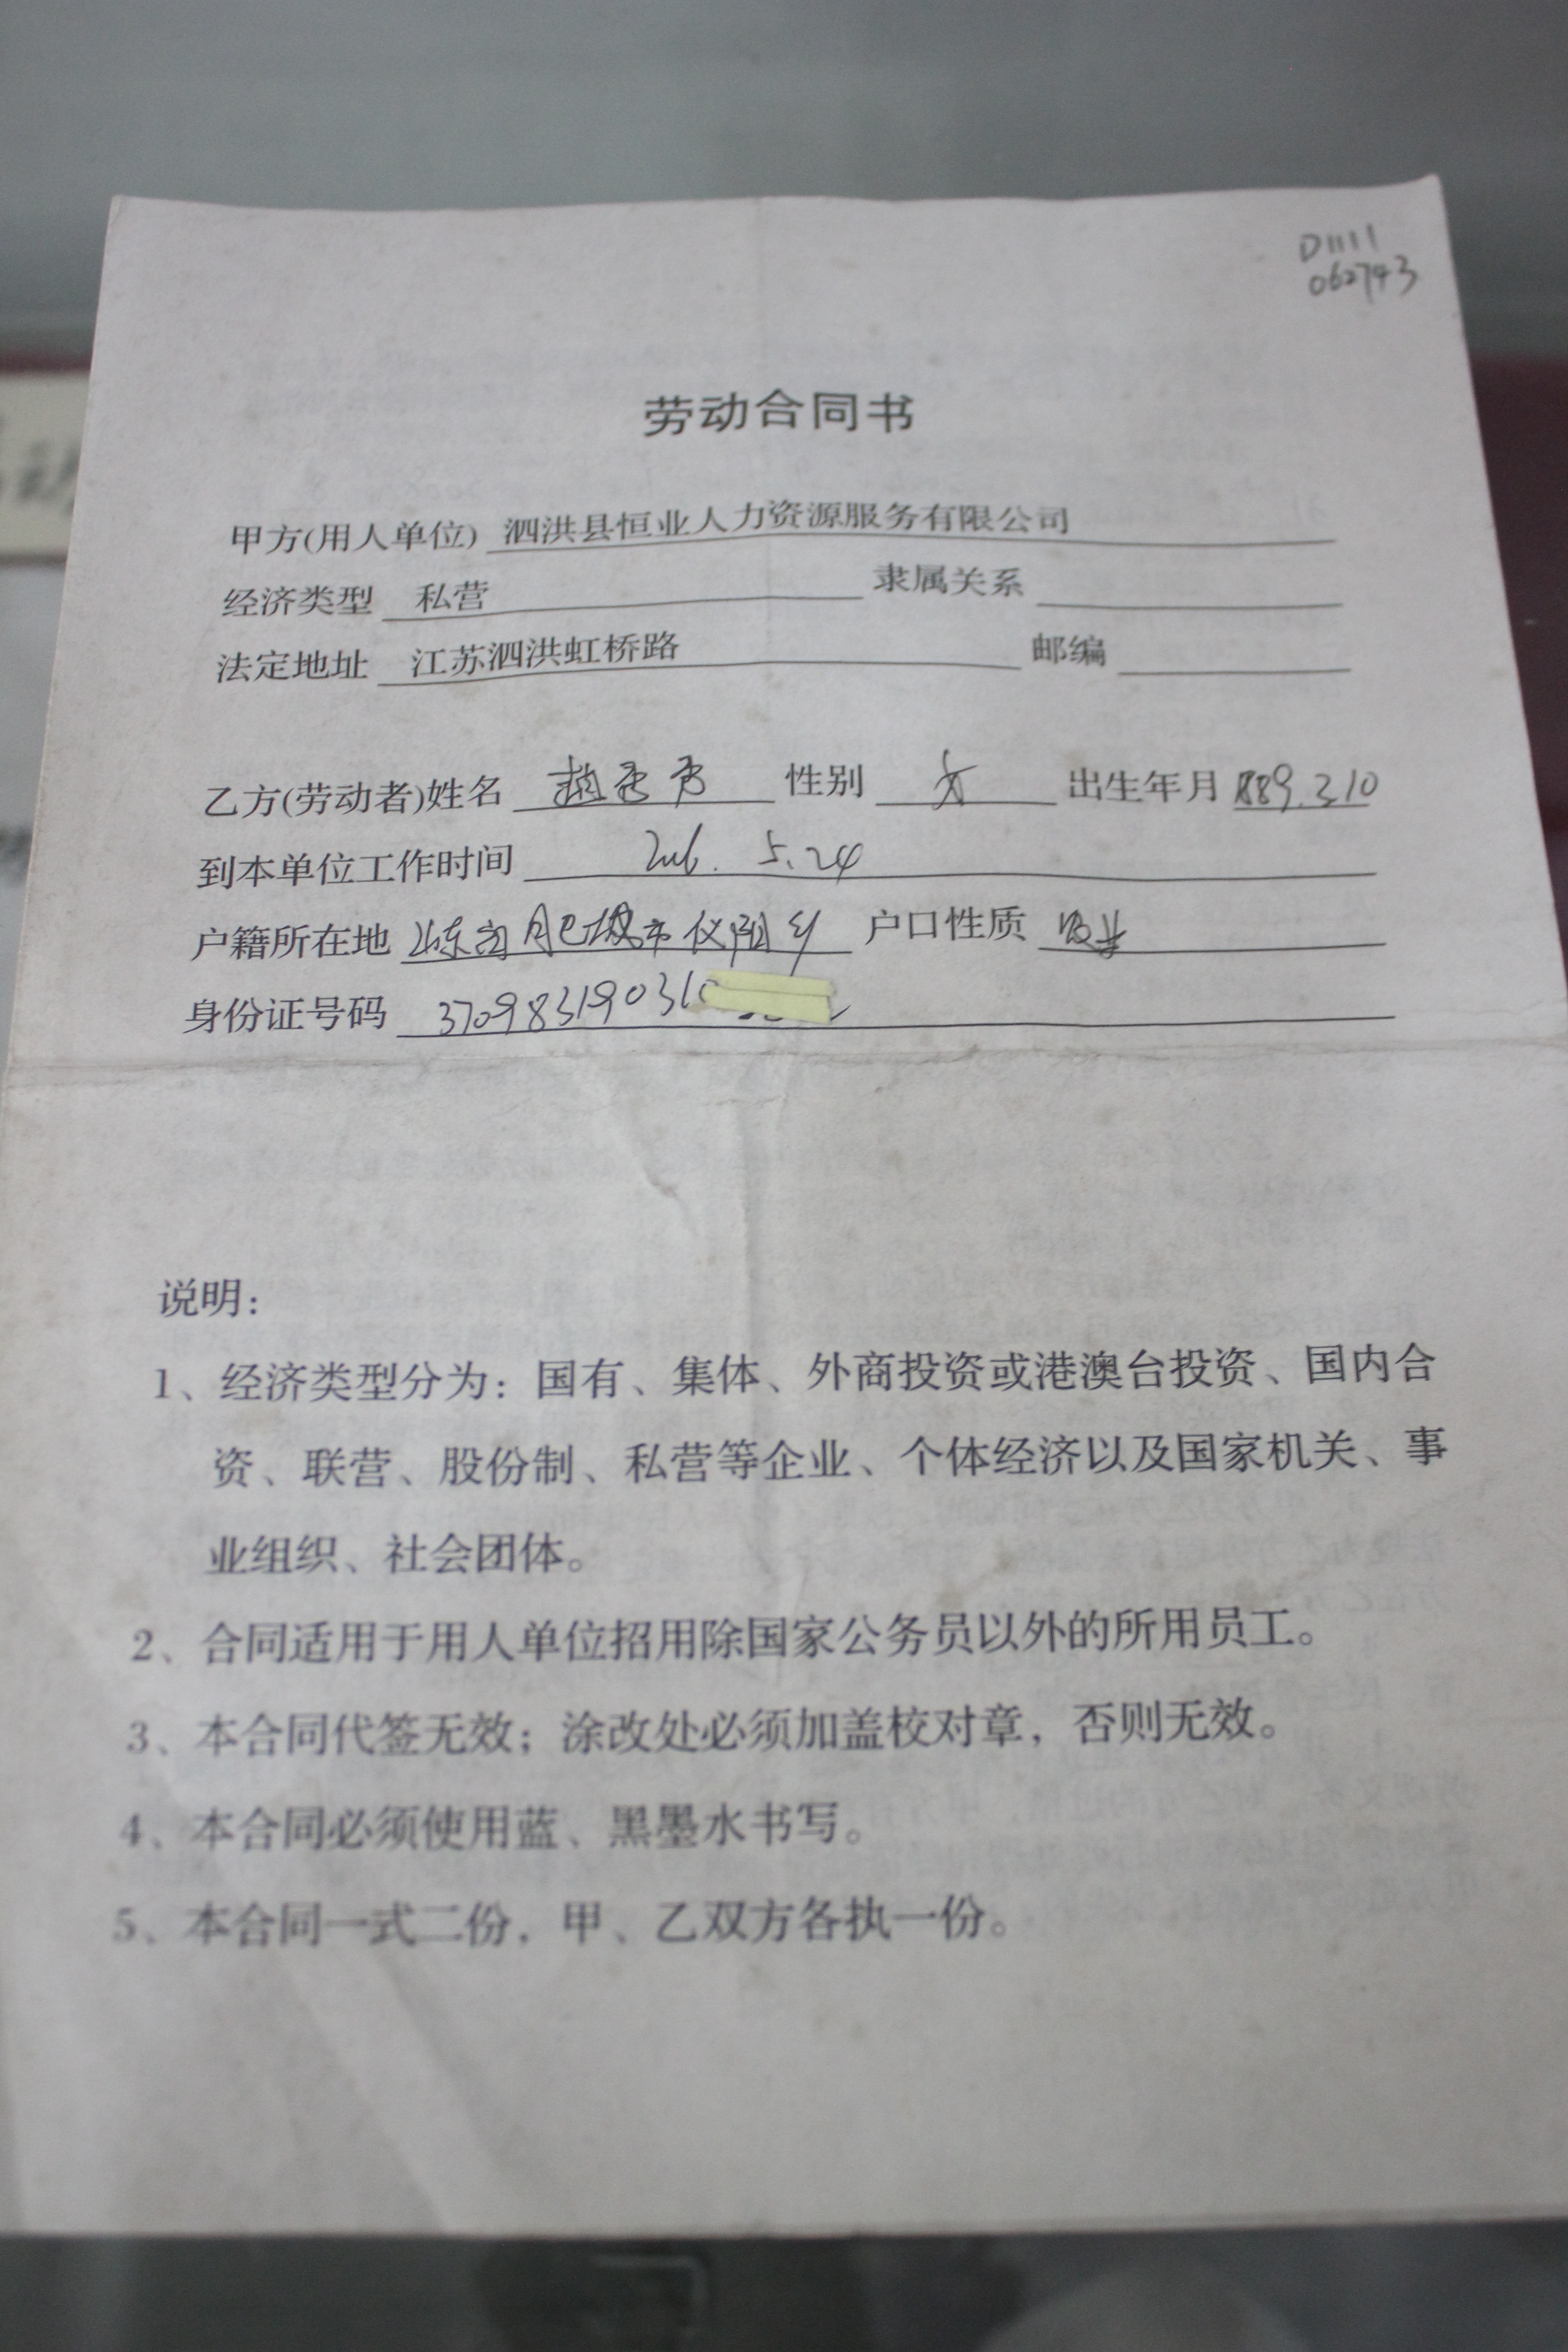 D1111
062743
劳动合同书
甲方(用人单位) 泗洪县恒业人力资源服务有限公司
经济类型 私营 隶属关系
法定地址 江苏泗洪虹桥路 邮编
乙方(劳动者)姓名 赵 性别 女 出生年月 889.310
到本单位工作时间 5.24
户籍所在地 山东省肥城市仪阳乡 户口性质
身份证号码 370983190310
说明：
1、经济类型分为：国有、集体、外商投资或港澳台投资、国内合
资、联营、股份制、私营等企业、个体经济以及国家机关、事
业组织、社会团体。
2、合同适用于用人单位招用除国家公务员以外的所用员工。
3、本合同代签无效；涂改处必须加盖校对章，否则无效。
4、本合同必须使用蓝、黑墨水书写。
5、本合同一式二份，甲、乙双方各执一份。